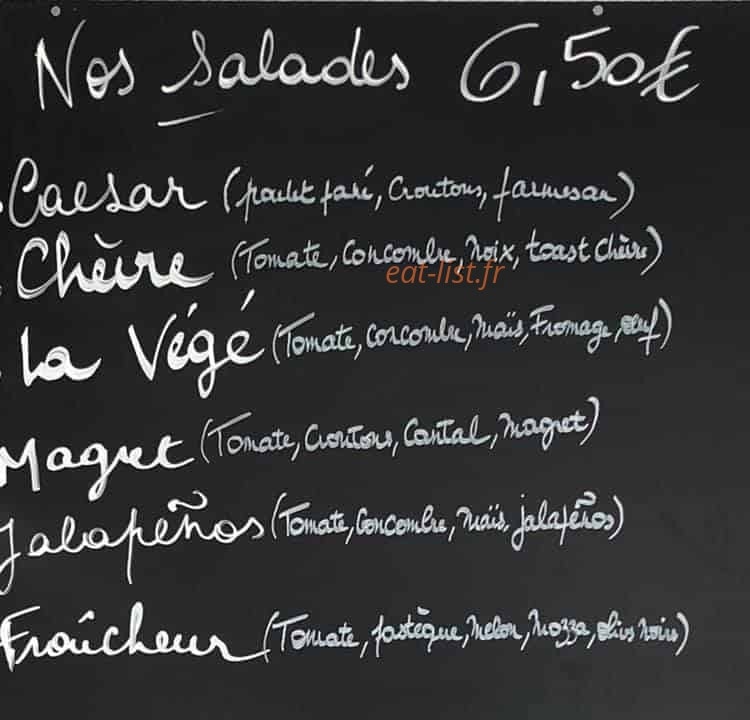 Nos Salades 6,50€
Caesar (poulet pané, Croutons, parmesan)
Chèvre (Tomate, Concombre, noix, toast chèvre)
eat-list.fr
La Végé (Tomate, concombre, maïs, Fromage, œuf)
Magret (Tomate, Croutons, Cantal, magret)
Jalapeños (Tomate, Concombre, maïs, jalapeños)
Fraîcheur (Tomate, pastèque, melon, mozza, olives noires)